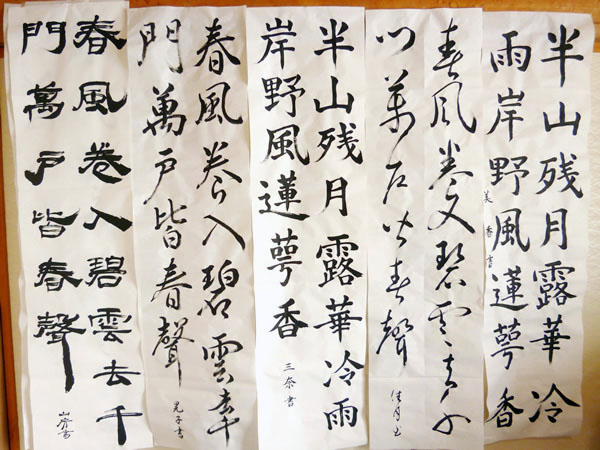 半山残月露華冷
雨岸野風蓮萼香
美香書
春風巻入碧雲去千
門萬戸皆春聲
佳月書
半山残月露華冷雨
岸野風蓮萼香
三奈書
春風巻入碧雲去千
門萬戸皆春聲
子書
春風巻入碧雲去千
門萬戸皆春聲
書